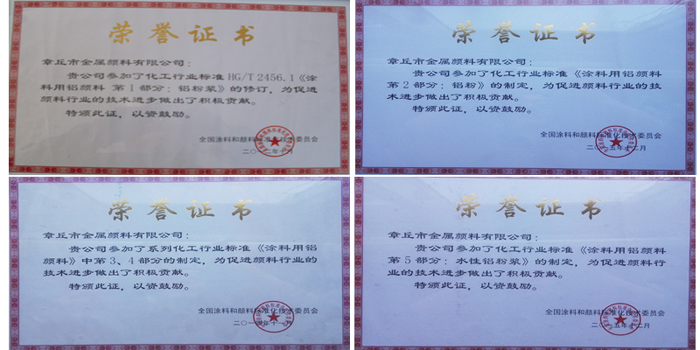 荣誉证书
章丘市金属颜料有限公司：
贵公司参加了化工行业标准 HG/T 2456.1《涂
料用铝颜料 第1部分：铝粉浆》的修订，为促进
颜料行业的技术进步做出了积极贡献。
特颁此证，以资鼓励。
全国涂料和颜料标准化技术委员会
荣誉证书
章丘市金属颜料有限公司：
贵公司参加了化工行业标准《涂料用铝颜料
第2部分：铝粉》的制定，为促进颜料行业的技
术进步做出了积极贡献。
特颁此证，以资鼓励。
全国涂料和颜料标准化技术委员会
二〇一五年十二月
荣誉证书
章丘市金属颜料有限公司：
贵公司参加了系列化工行业标准《涂料用铝
颜料》中第3、4部分的制定，为促进颜料行业的
技术进步做出了积极贡献。
特颁此证，以资鼓励。
全国涂料和颜料标准化技术委员会
荣誉证书
章丘市金属颜料有限公司：
贵公司参加了化工行业标准《涂料用铝颜料
第5部分：水性铝粉浆》的制定，为促进颜料行业
的技术进步做出了积极贡献。
特颁此证，以资鼓励。
全国涂料和颜料标准化技术委员会
二〇一五年十二月